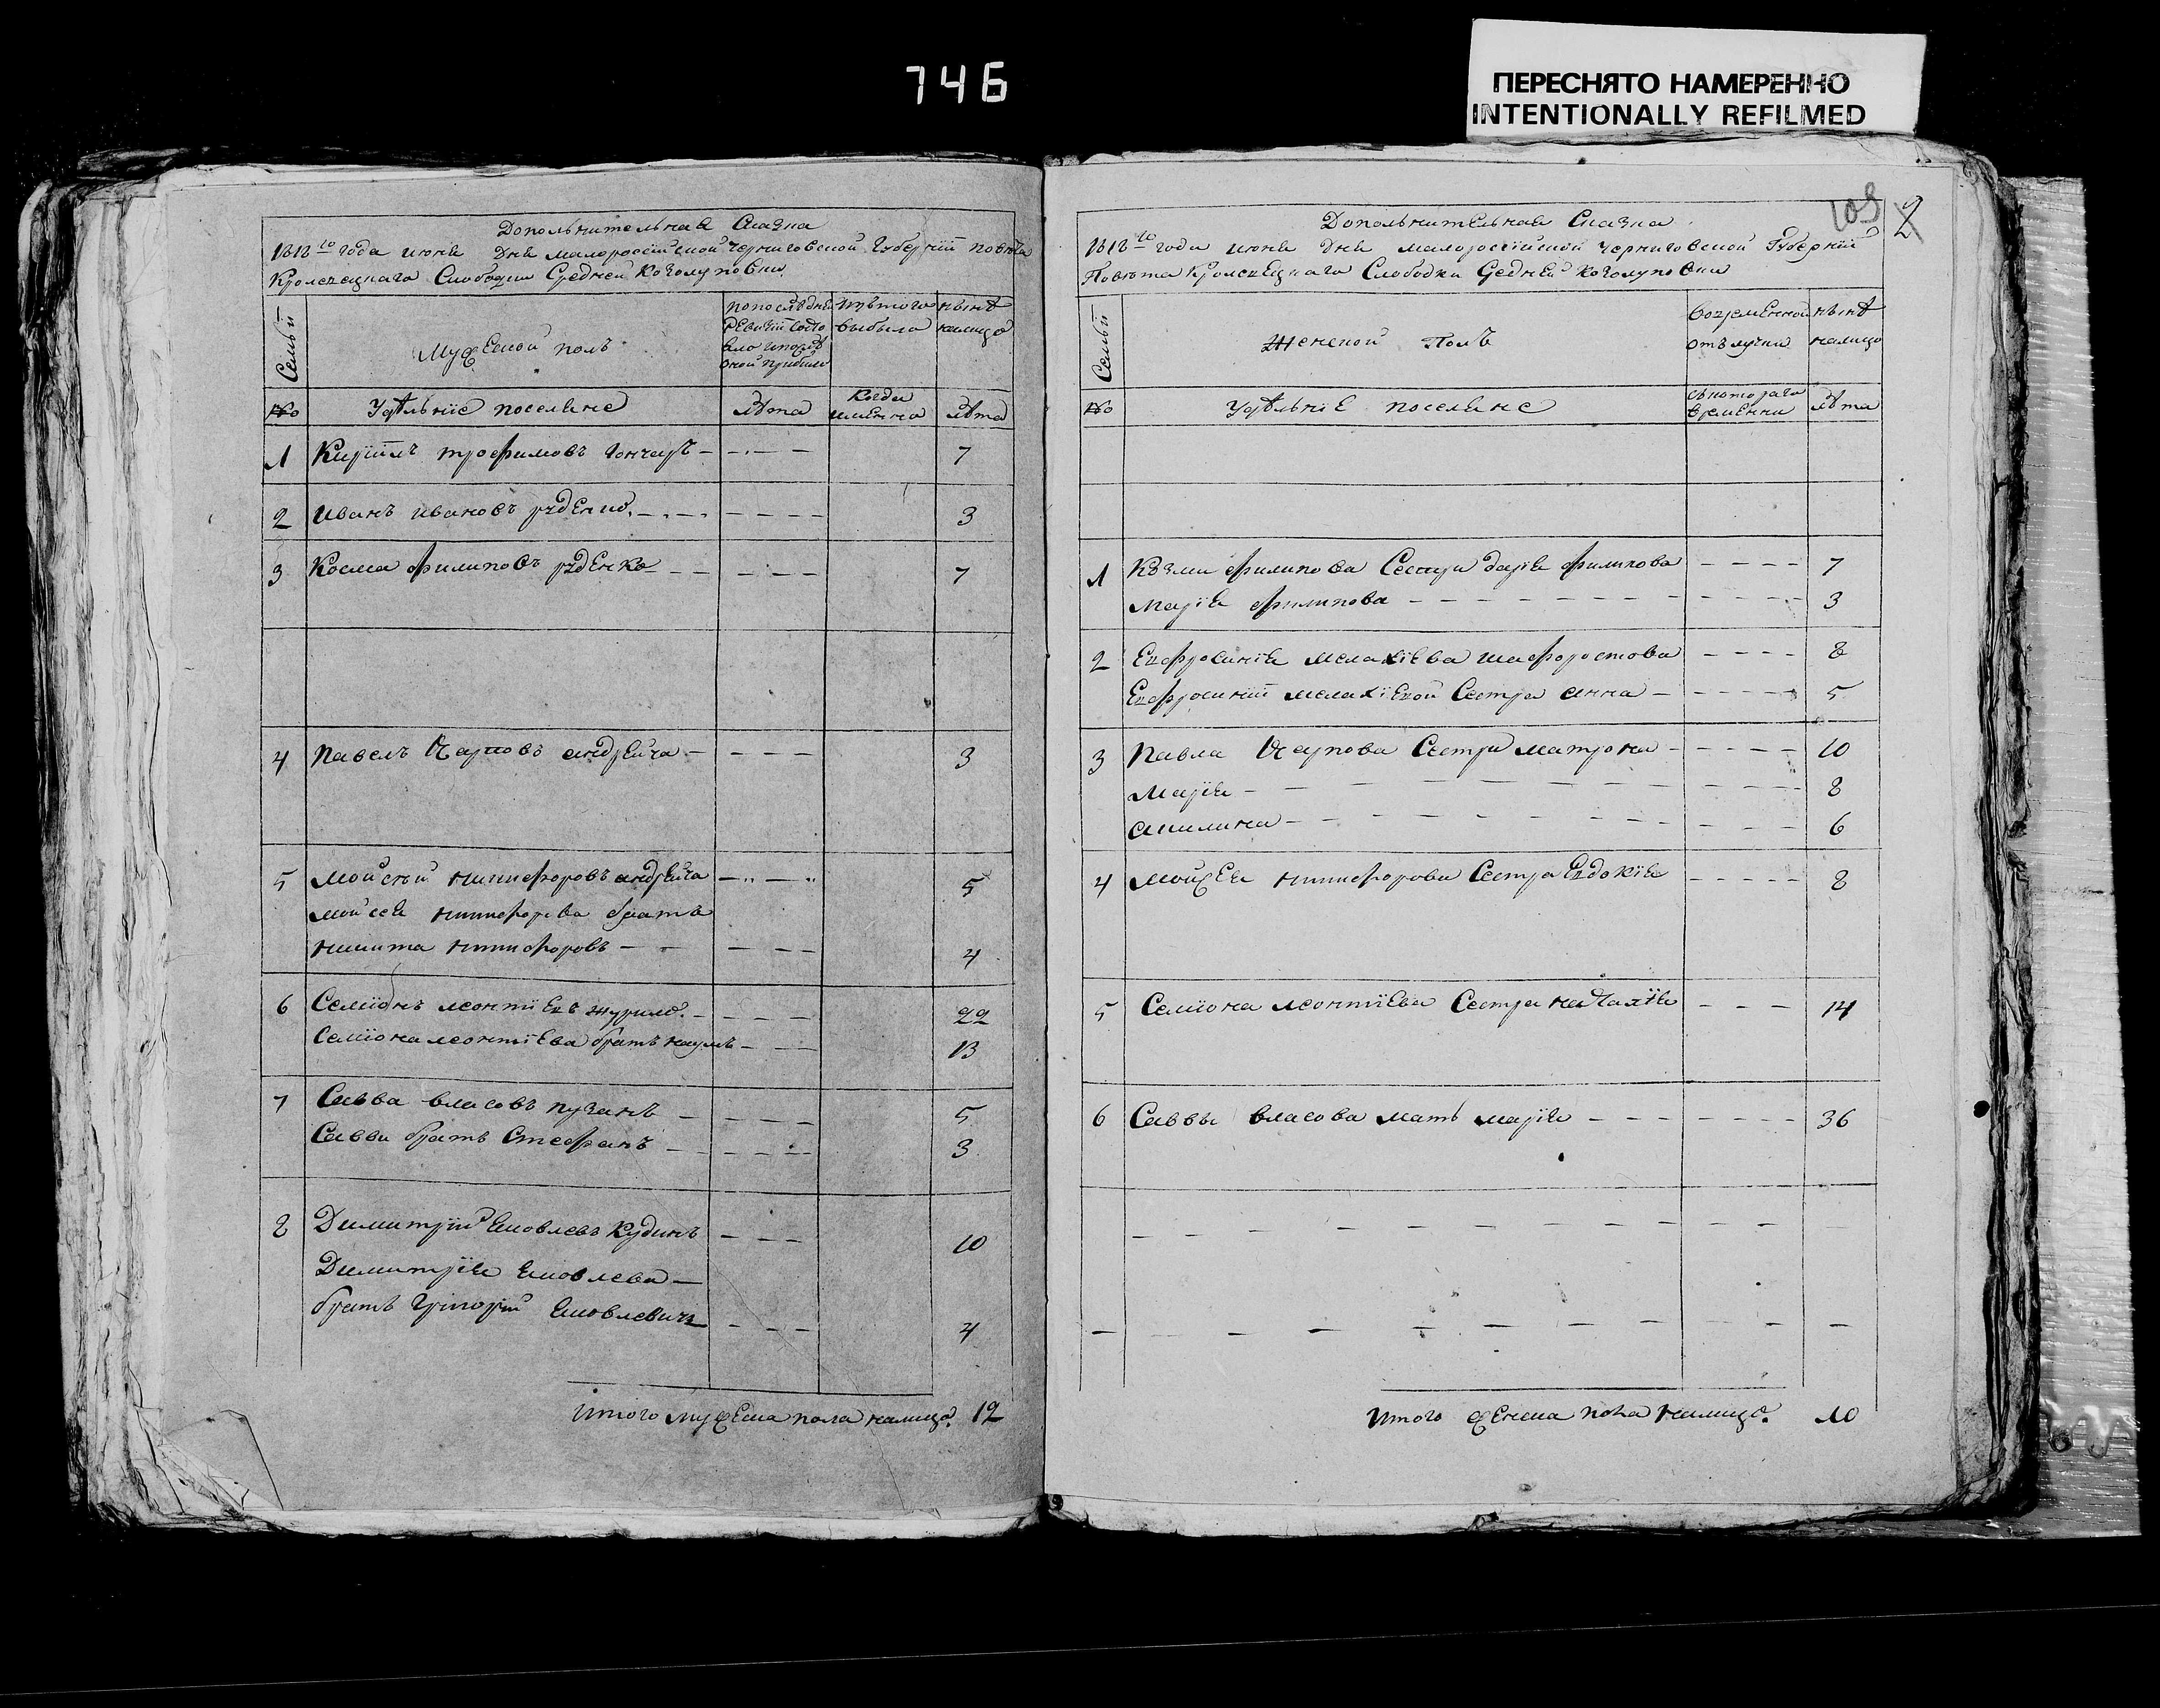 746
ПЕРЕСНЯТО НАМЕРЕННО
INTENTIONALLY REFILMED
Дополнительная Сказка
1818го года июня дня малороссійской Черниговской Губерніи повѣта
Кролевецкаго Слободки Средней
Семьи
Мужеской полъ
выбыло
нынѣ
налицо
№
поселяне
Лѣта
Когда
именно
Лѣта
1 Кирiилъ трофимовъ гончаръ 7
2 Иванъ ивановъ руденко 3
3 Косма филиповъ руденко 7
4 Павелъ Карповъ андрейча 3
5 Мойсей никифоровъ андрейча 5
Мойсея никифорова братъ
никита никифоровъ 4
6 Семіонъ леонтіевъ журило 22
Семіона леонтіева братъ наумъ 13
7 Савва власовъ пузанъ 5
Саввы братъ Стефанъ 3
8 Димитрій яковлевъ Кудинъ 10
Димитрія яковлева
братъ Григорій яковлевичъ 4
Итого мужеска пола налицо 12
109 2
Дополнительная Сказка
1818го года июня дня малороссійской Черниговской Губерніи
Повѣта Кролевецкаго Слободки Средней
Семьи
Женской Полъ
во временной
отлучки
нынѣ
налицо
№
поселяне
съ котораго
времени
Лѣта
1 Козми филипова Сестра дарія филипова 7
Марія филипова 3
2 Евфросинія малахіева шафоростова 8
Евфросиніи малахіевой Сестра анна 5
3 Павла Карпова Сестра матрона 10
Марія 8
акилина 6
4 Мойсея никифорова Сестра Евдокія 8
5 Семіона леонтіева Сестра наталія 14
6 Саввы власова мать марія 36
Итого женска пола налицо 10